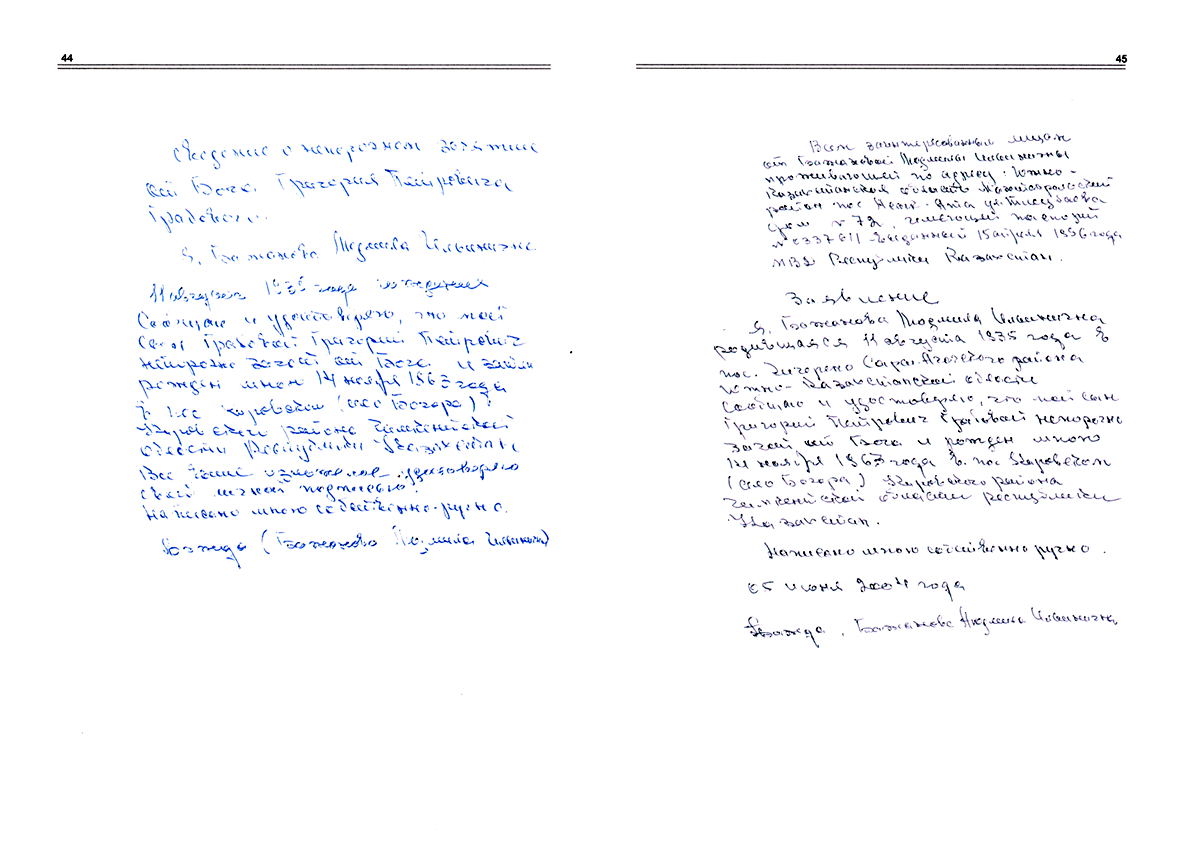 44
Сведение о непорочном зачатие
от Бога Григория Петровича
Грабового.
Я, Бажанова Людмила Ильинична
11 августа 1935 года рождения
Сообщаю и удостоверяю, что мой
сын Грабовой Григорий Петрович
непорочно зачат от Бога и затем
рожден мной 14 ноября 1963 года
в пос Кировский (село Богара)
Кировского района Чимкентской
области Республики Казахстан.
Все выше изложенное удостоверяю
своей личной подписью.
Написано мною собственноручно.
(Бажанова Людмила Ильинична)
45
Всем заинтересованным лицам
от Бажановой Людмилы Ильиничны
проживающей по адресу: Южно-
Казахстанская область
район пос
дом № 72, имеющий паспорт
№ 0337611 выданный 15 апреля 1996 года
МВД Республики Казахстан.
Заявление
Я, Бажанова Людмила Ильинична
родившаяся 11 августа 1935 года в
пос. Сары-Агачского района
Южно-Казахстанской области
сообщаю и удостоверяю, что мой сын
Григорий Петрович Грабовой непорочно
зачат от Бога и рожден мною
14 ноября 1963 года в пос Кировском
(село Богара) Кировского района
Чимкентской области республики
Казахстан.
Написано мною собственноручно.
05 июня 2004 года
Бажанова Людмила Ильинична